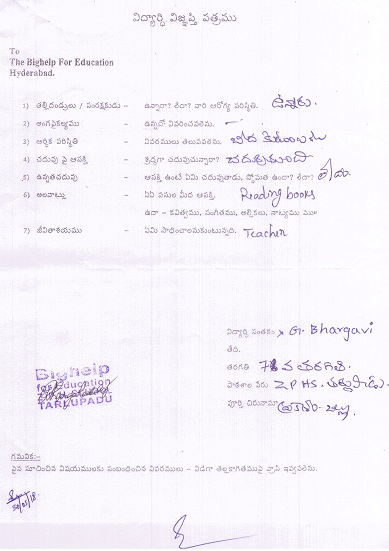 విద్యార్థి విజ్ఞప్తి పత్రము
To
The Bighelp For Education
Hyderabad.
1) తల్లిదండ్రులు / సంరక్షకుడు - ఉన్నారా? లేదా? వారి ఆరోగ్య పరిస్థితి. ఉన్నారు.
2) అంగవైకల్యము - ఉన్నచో వివరించవలెను. -
3) ఆర్థిక పరిస్థితి - వివరములు తెలుపవలెను. బీద కుటుంబము
4) చదువు పై ఆసక్తి - శ్రద్ధగా చదువుచున్నారా? చదువుతుంది
5) ఉన్నతచదువు - ఆసక్తి ఉంటే ఏమి చదువుతాడు, స్తోమత ఉందా? లేదా?
6) అలవాట్లు - ఏఏ పనుల మీద ఆసక్తి. Reading books
ఉదా - కవిత్వము, సంగీతము, అల్లికలు, నాట్యము
7) జీవితాశయము - ఏమి సాధించాలనుకుంటున్నది. Teacher
విద్యార్థి సంతకం G. Bhargavi
తేది.
తరగతి 7వ తరగతి
పాఠశాల పేరు ZPHS.
పూర్తి చిరునామా
Bighelp
for Education
TARLUPADU
గమనిక:-
పైన సూచించిన విషయములకు సంబంధించిన వివరములు - విడిగా తెల్లకాగితముపై వ్రాసి ఇవ్వవలెను.